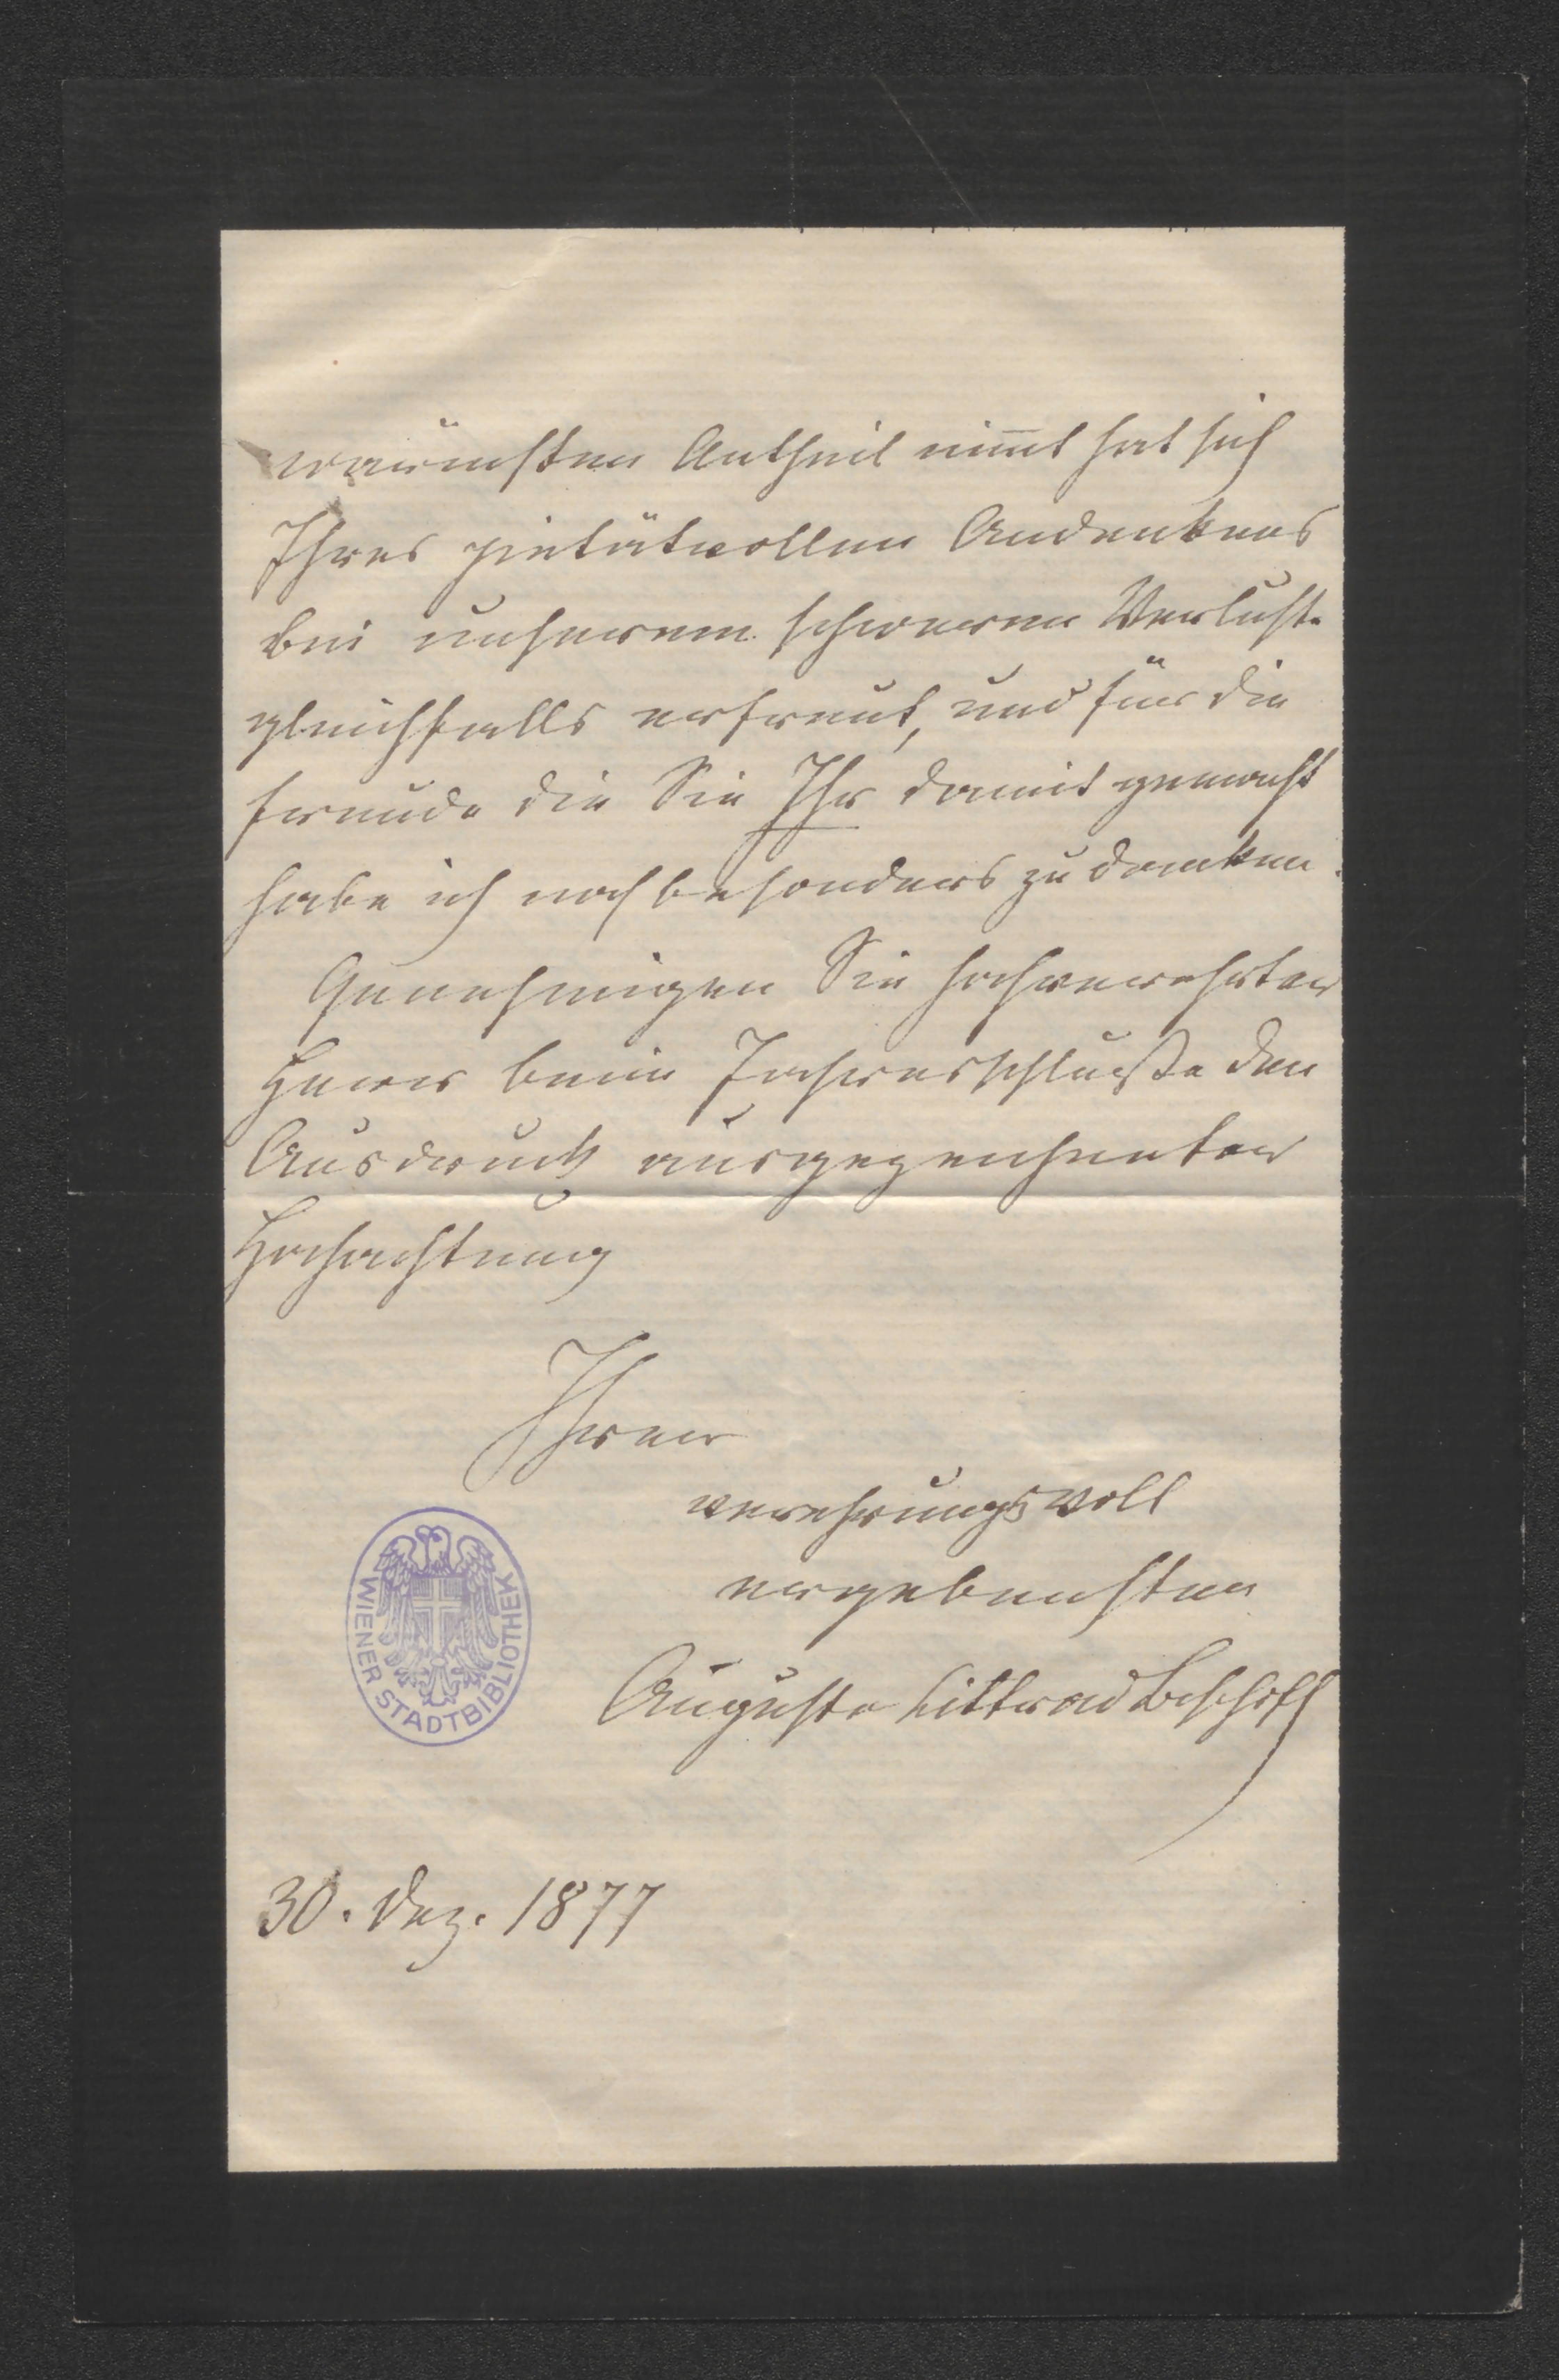 wärmsten Antheil nim̅t hat sich
Ihres pietätvollen Andenkens
bei unserem schweren Verluste
gleichfalls erfreut, und für die
Freude die Sie Ihr damit gemacht
habe ich noch besonders zu danken.
Genehmigen Sie hochverehrter
Herr beim Jahresschluße den
Ausdruck ausgezeichneter
Hochachtung
Ihrer
verehrungsvoll
ergebensten
Auguste Littrow Bischoff
WIENER STADTBIBLIOTHEK
30. Dez. 1877